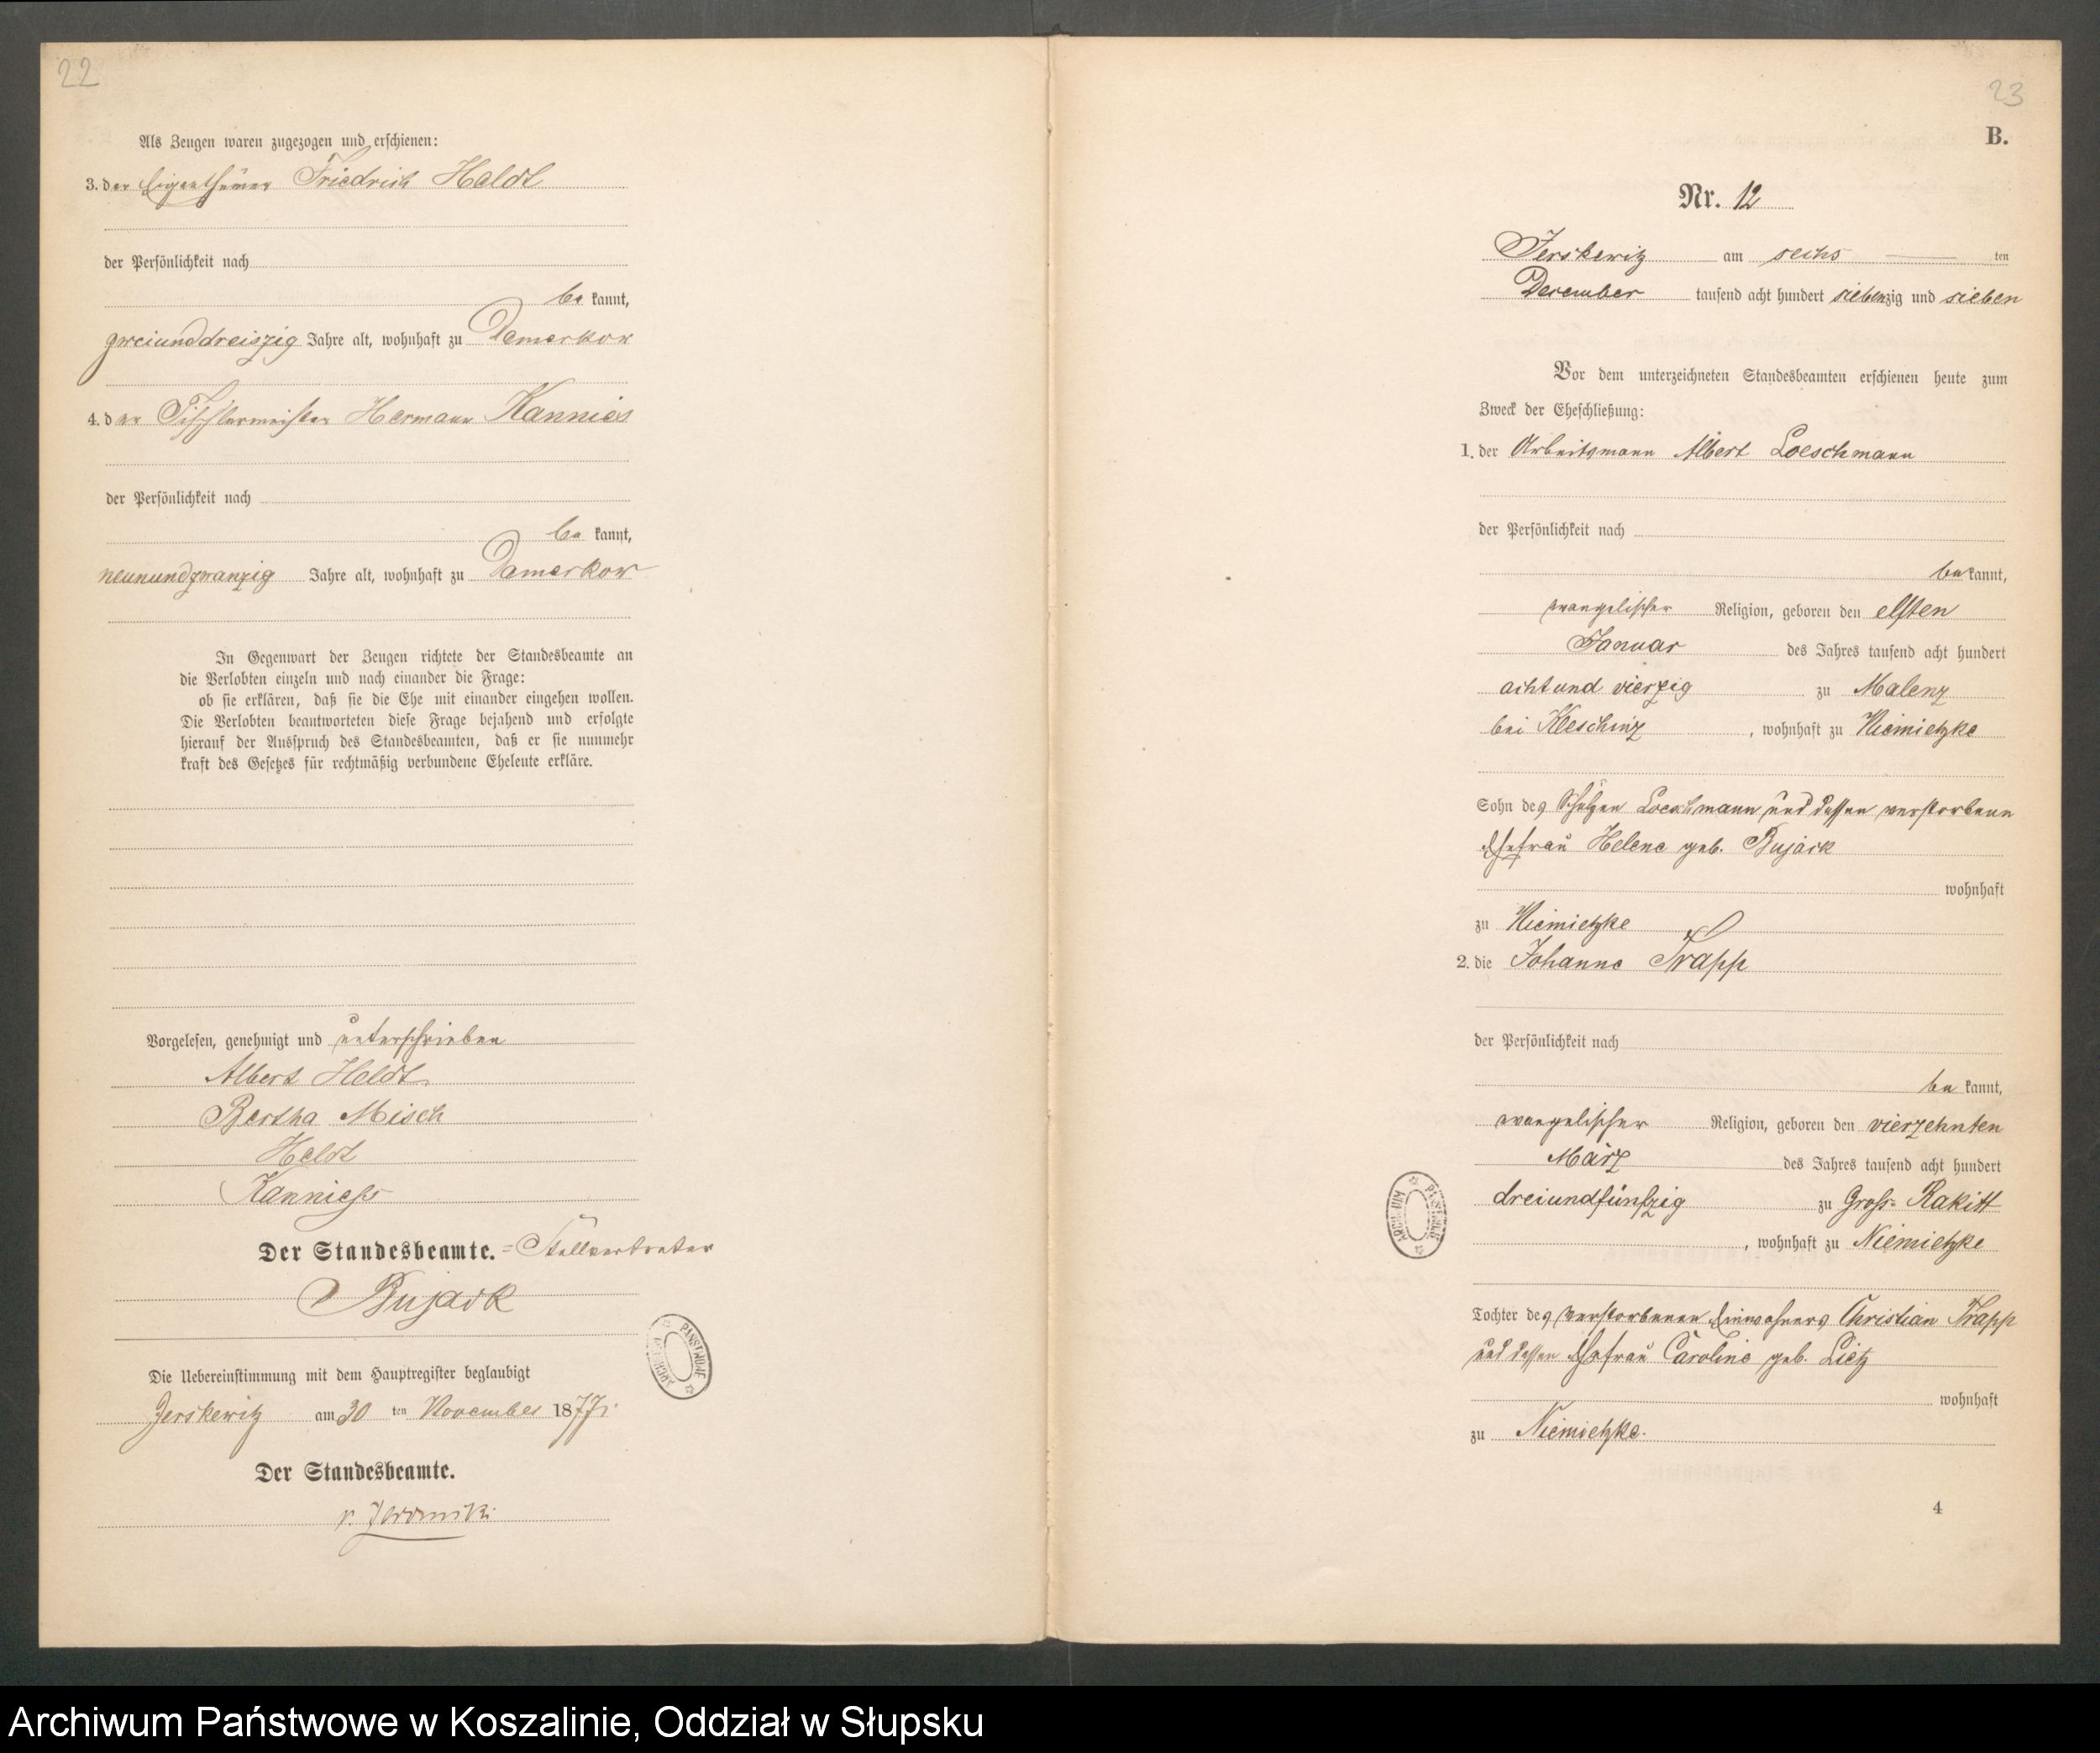 22
Als Zeugen waren zugezogen und erschienen:
3. der Eigenthümer Friedrich Heldt
der Persönlichkeit nach
be kannt,
zweiunddreiszig Jahre alt, wohnhaft zu Damerkow
4. der Tischlermeister Hermann Kanniess
der Persönlichkeit nach
be kannt,
neunundzwanzig Jahre alt, wohnhaft zu Damerkow
In Gegenwart der Zeugen richtete der Standesbeamte an
die Verlobten einzeln und nach einander die Frage:
ob sie erklären, daß sie die Ehe mit einander eingehen wollen.
Die Verlobten beantworteten diese Frage bejahend und erfolgte
hierauf der Ausspruch des Standesbeamten, daß er sie nunmehr
kraft des Gesetzes für rechtmäßig verbundene Eheleute erkläre.
Vorgelesen, genehmigt und unterschrieben
Albert Heldt
Bertha Misch
Heldt
Kanniess
Der Standesbeamte. = Stellvertreter
Bujack
Die Uebereinstimmung mit dem Hauptregister beglaubigt
Jerskewitz am 30 ten November 1877.
Der Standesbeamte.
ARCHIWUM PAŃSTWOWE
23
B.
Nr. 12
Jerskewitz am sechs ten
December tausend acht hundert siebenzig und sieben
Vor dem unterzeichneten Standesbeamten erschienen heute zum
Zweck der Eheschließung:
1. der Arbeitsmann Albert Loeschmann
der Persönlichkeit nach
be kannt,
evangelischer Religion, geboren den elften
Januar des Jahres tausend acht hundert
acht und vierzig zu Malenz
bei Kleschinz, wohnhaft zu Niemietzke
Sohn des Schulzen Loeschmann und dessen verstorbene
Ehefrau Helene geb. Bujack
wohnhaft
zu Niemietzke
2. die Johanne Trapp
der Persönlichkeit nach
be kannt,
evangelischer Religion, geboren den vierzehnten
März des Jahres tausend acht hundert
dreiundfünfzig zu Gross-Rakitt
, wohnhaft zu Niemietzke
Tochter des verstorbenen Einwohners Christian Trapp
und dessen Ehefrau Caroline geb. Lietz
wohnhaft
zu Niemietzke.
4
ARCHIWUM PAŃSTWOWE
Archiwum Państwowe w Koszalinie, Oddział w Słupsku